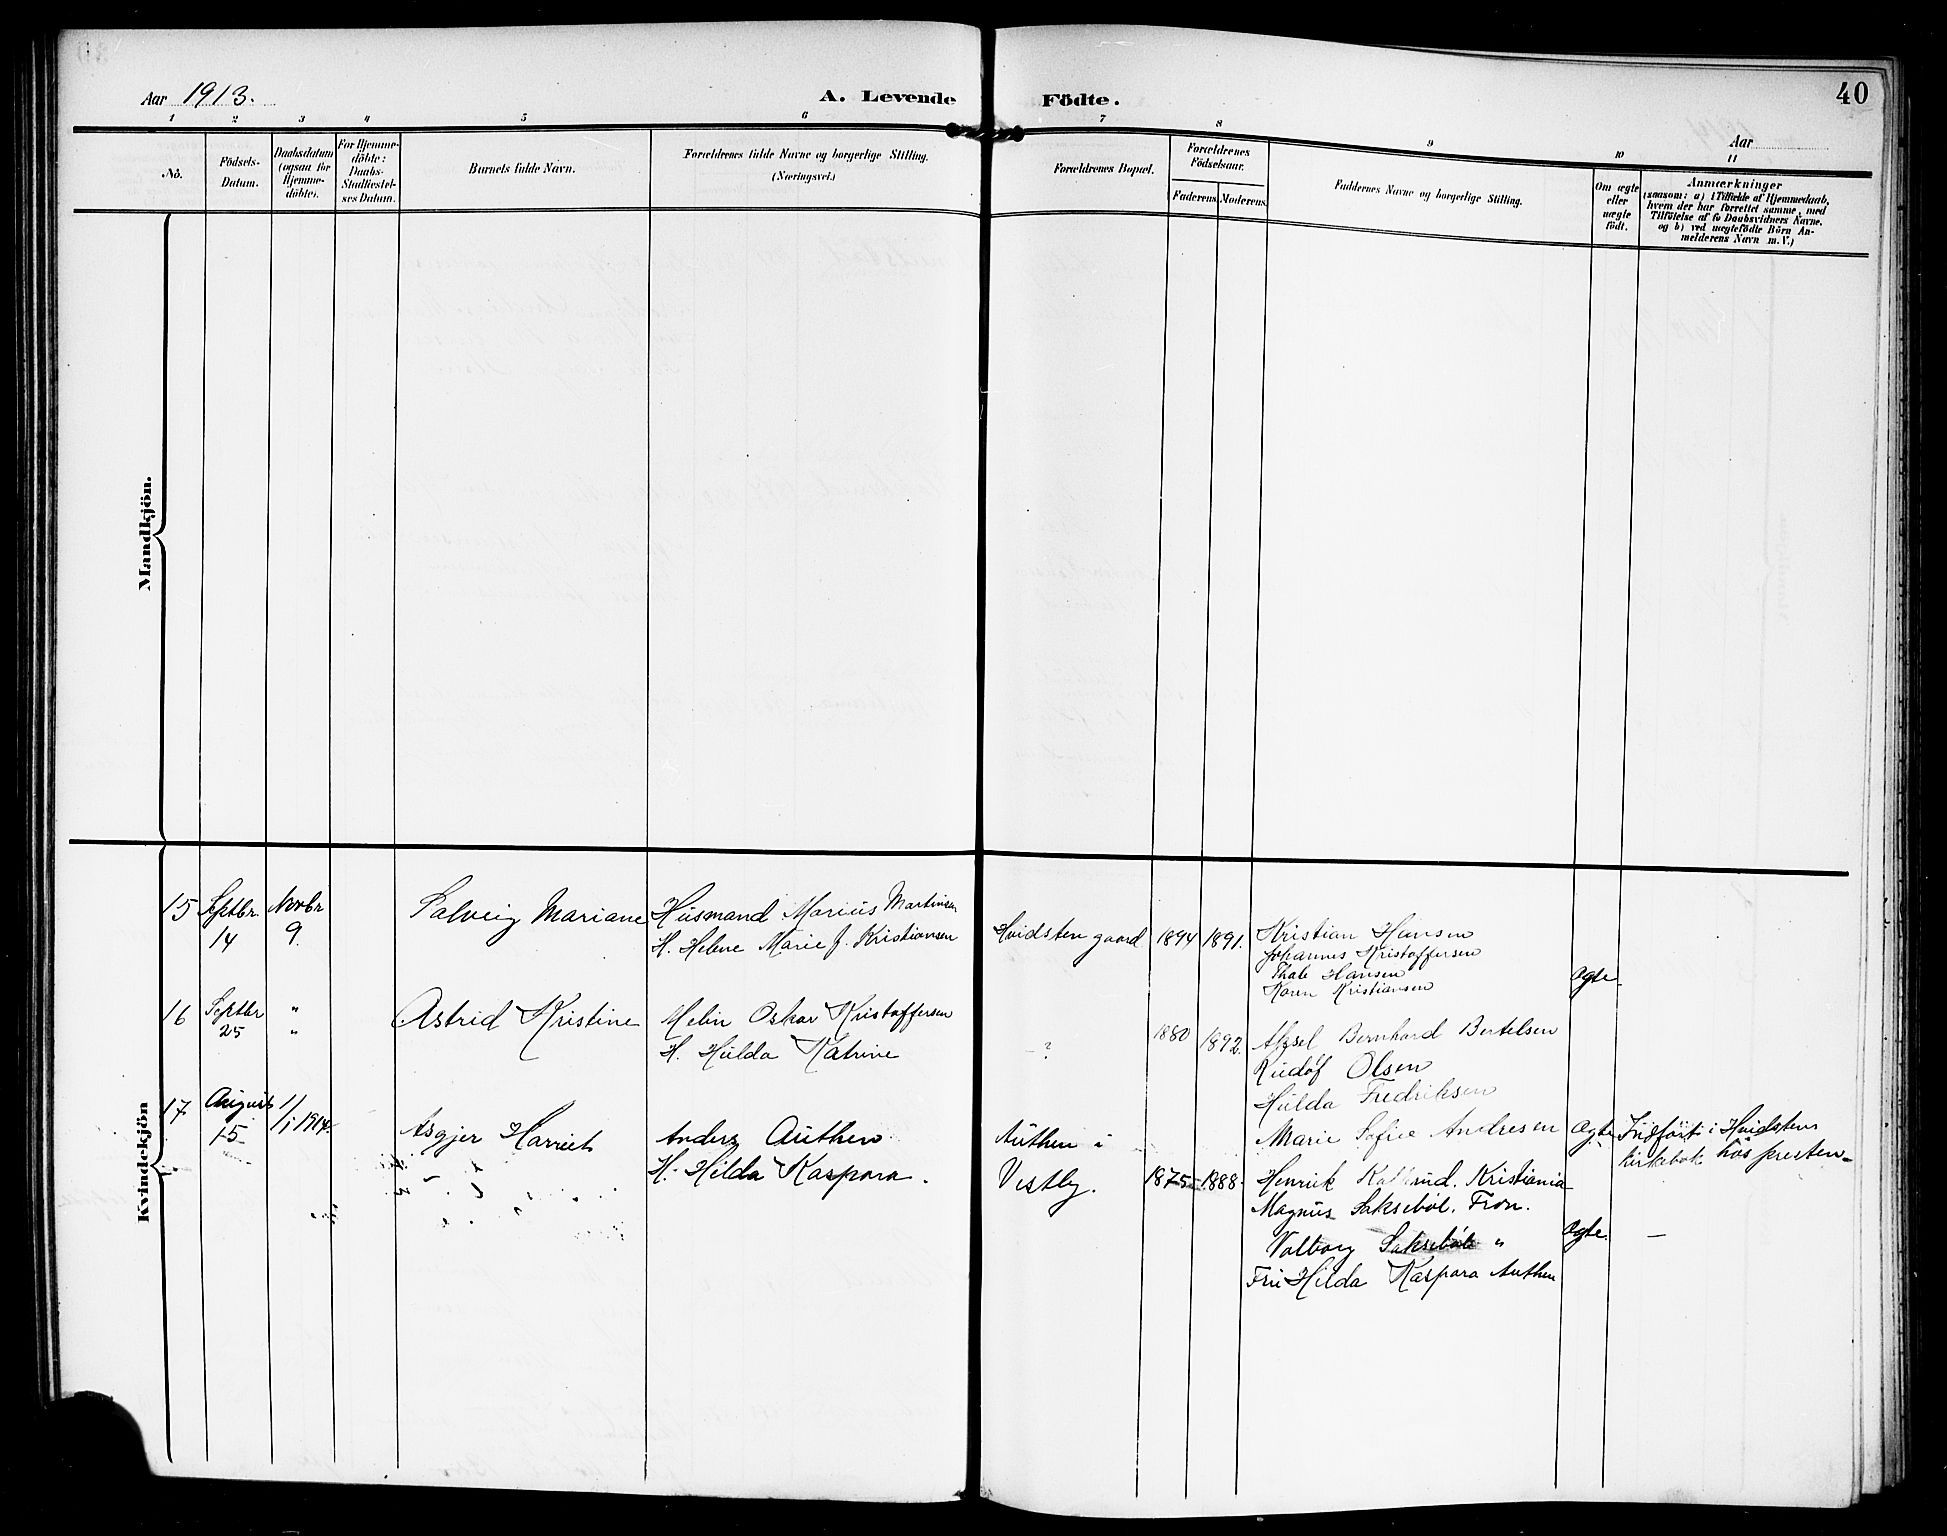 40
Aar 1913.
A. Levende Födte.
Aar
1 2 3 4 5 6 7 8 9 10 11
No.
Födsels-
Datum.
Daabsdatum
(ogsaa for
Hjemme-
döbte).
For Hjemme-
döbte:
Daabs-
Stadfæstel-
ses Datum.
Barnets fulde Navn.
Forældrenes fulde Navne og borgerlige Stilling.
(Næringsvei.)
Forældrenes Bopæl.
Forældrenes
Födselsaar.
Faderens. Moderens.
Faddernes Navne og borgerlige Stilling.
Om ægte
eller
uægte
födt.
Anmærkninger
(saasom: a) i Tilfælde af Hjemmedaab,
hvem der har forrettet samme, med
Tilföielse af to Daabsvidners Navne.
og b) ved uægtefödte Börn An-
melderens Navn m.V.)
Mandkjön.
Kvindekjön
15
Septbr.
14
Novbr
9.
Solveig Mariane
Husmand Marius Martinsen
H. Helene Marie f. Kristiansen
Hvidsten gaard
1894
1891.
Kristian Hansen
Johannes Kristoffersen
Thale Hansen
Karen Kristiansen
Ægte
16
Septbr
25
"
"
Astrid Kristine
Melin Oskar Kristoffersen
H. Hulda Katrine
- ?
1880
1892.
Aksel Bernhard Bertelsen
Rudolf Olsen
Hulda Fredriksen
Marie Sofie Andresen
Ægte
Indfört i Hvidsten
kirkebok hos presten
17
August
15
1/1 1914.
Asgjer Harriet
Anders Authen
H. Hilda Kaspara.
Authen i
Vestby.
1875
1888.
Henrik Kristiania
Magnus Saksebøl. Fron.
Valborg Saksebøl "
Fru Hilda Kaspara Authen
Ægte.
—